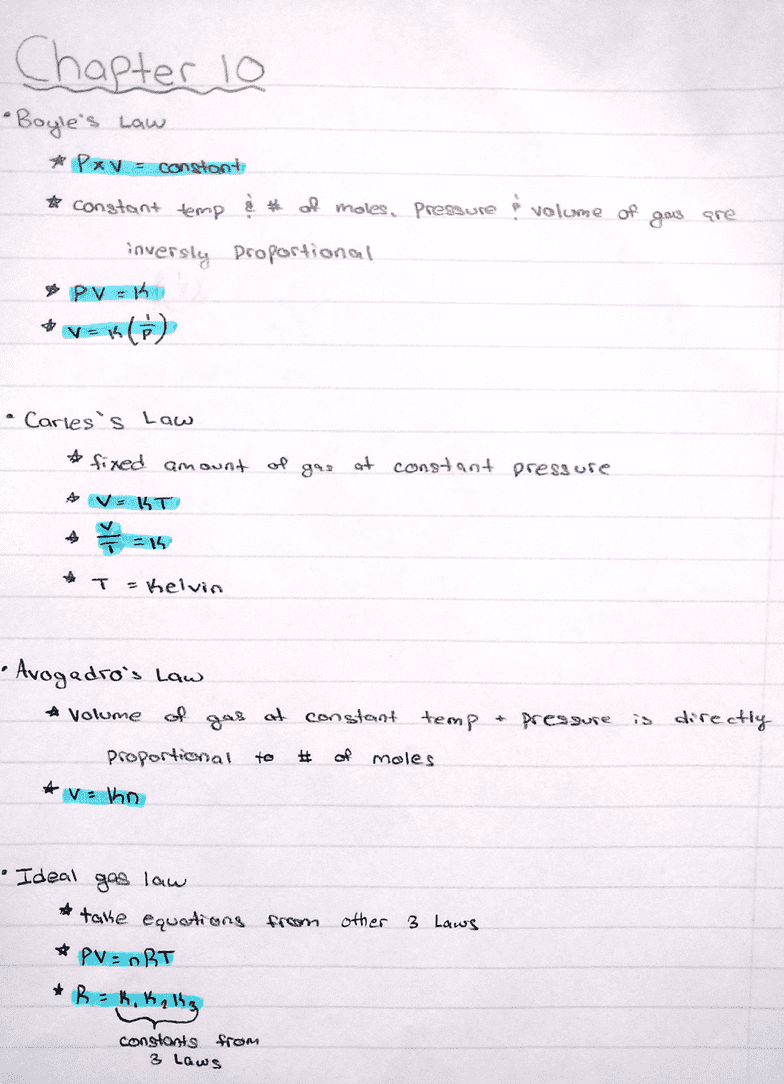 Chapter 10
• Boyle's Law
* P×V = constant
* constant temp & # of moles, pressure & volume of gas are
inversly proportional
* PV = K
* V = K(1/P)
• Carles's Law
* fixed amount of gas at constant pressure
* V = KT
* V/T = K
* T = Kelvin
• Avogadro's Law
* Volume of gas at constant temp + pressure is directly
proportional to # of moles
* V = Kn
• Ideal gas law
* take equations from other 3 Laws
* PV = nRT
* R = K₁ K₂ K₃
constants from
3 Laws